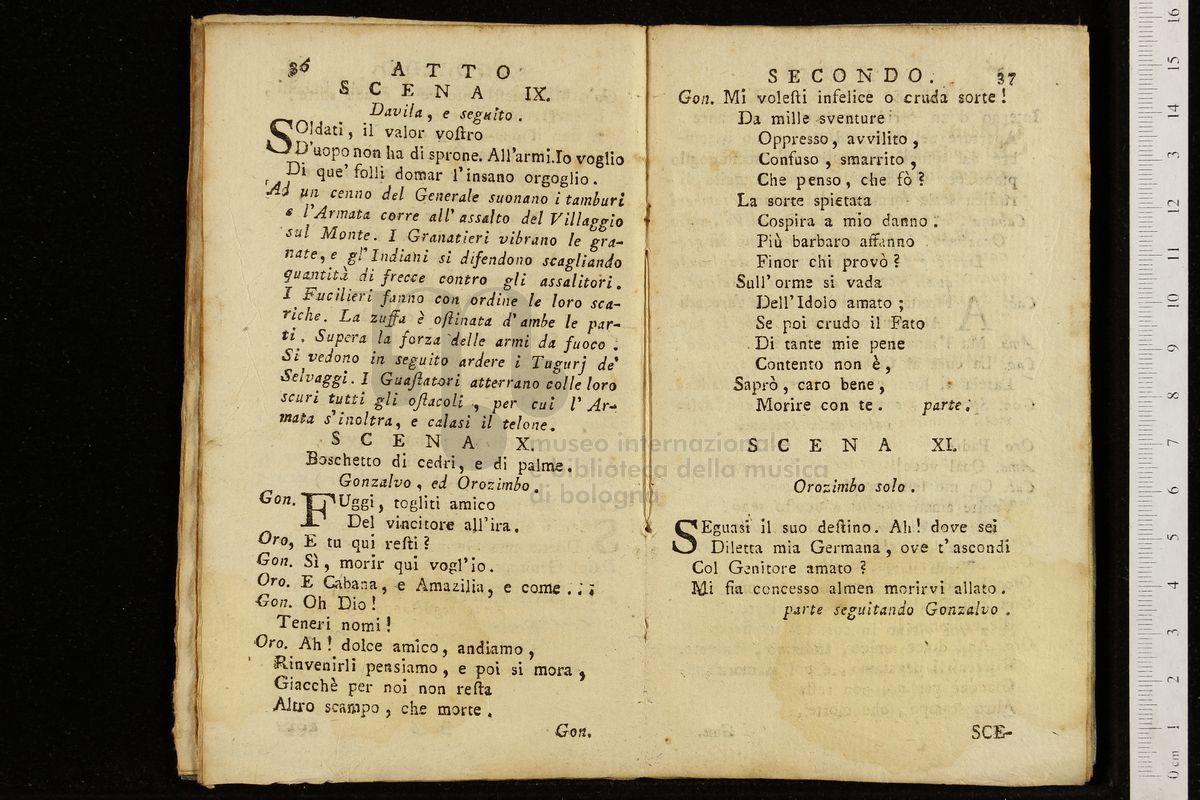 36
ATTO
SCENA IX.
Davila, e seguito.
SOldati, il valor vostro
D'uopo non ha di sprone. All'armi. Io voglio
Di que' folli domar l'insano orgoglio.
Ad un cenno del Generale suonano i tamburi
e l'Armata corre all'assalto del Villaggio
sul Monte. I Granatieri vibrano le gra-
nate, e gl'Indiani si difendono scagliando
quantità di frecce contro gli assalitori.
I Fucilieri fanno con ordine le loro sca-
riche. La zuffa è ostinata d'ambe le par-
ti. Supera la forza delle armi da fuoco.
Si vedono in seguito ardere i Tugurj de'
Selvaggi. I Guastatori atterrano colle loro
scuri tutti gli ostacoli, per cui l'Ar-
mata s'inoltra, e calasi il telone.
SCENA X.
Boschetto di cedri, e di palme.
Gonzalvo, ed Orozimbo.
Gon. FUggi, togliti amico
Del vincitore all'ira.
Oro, E tu qui resti?
Gon. Sì, morir qui vogl'io.
Oro. E Cabana, e Amazilia, e come...
Gon. Oh Dio!
Teneri nomi!
Oro. Ah! dolce amico, andiamo,
Rinvenirli pensiamo, e poi si mora,
Giacchè per noi non resta
Altro scampo, che morte.
Gon.
SECONDO.
37
Gon. Mi volesti infelice o cruda sorte!
Da mille sventure
Oppresso, avvilito,
Confuso, smarrito,
Che penso, che fò?
La sorte spietata
Cospira a mio danno:
Più barbaro affanno
Finor chi provò?
Sull'orme si vada
Dell'Idolo amato;
Se poi crudo il Fato
Di tante mie pene
Contento non è,
Saprò, caro bene,
Morire con te. parte.
SCENA XI.
Orozimbo solo.
SEguasi il suo destino. Ah! dove sei
Diletta mia Germana, ove t'ascondi
Col Genitore amato?
Mi fia concesso almen morirvi allato.
parte seguitando Gonzalvo.
SCE-
museo internazionale
e biblioteca della musica
di bologna
0 cm 1 2 3 4 5 6 7 8 9 10 11 12 13 14 15 16